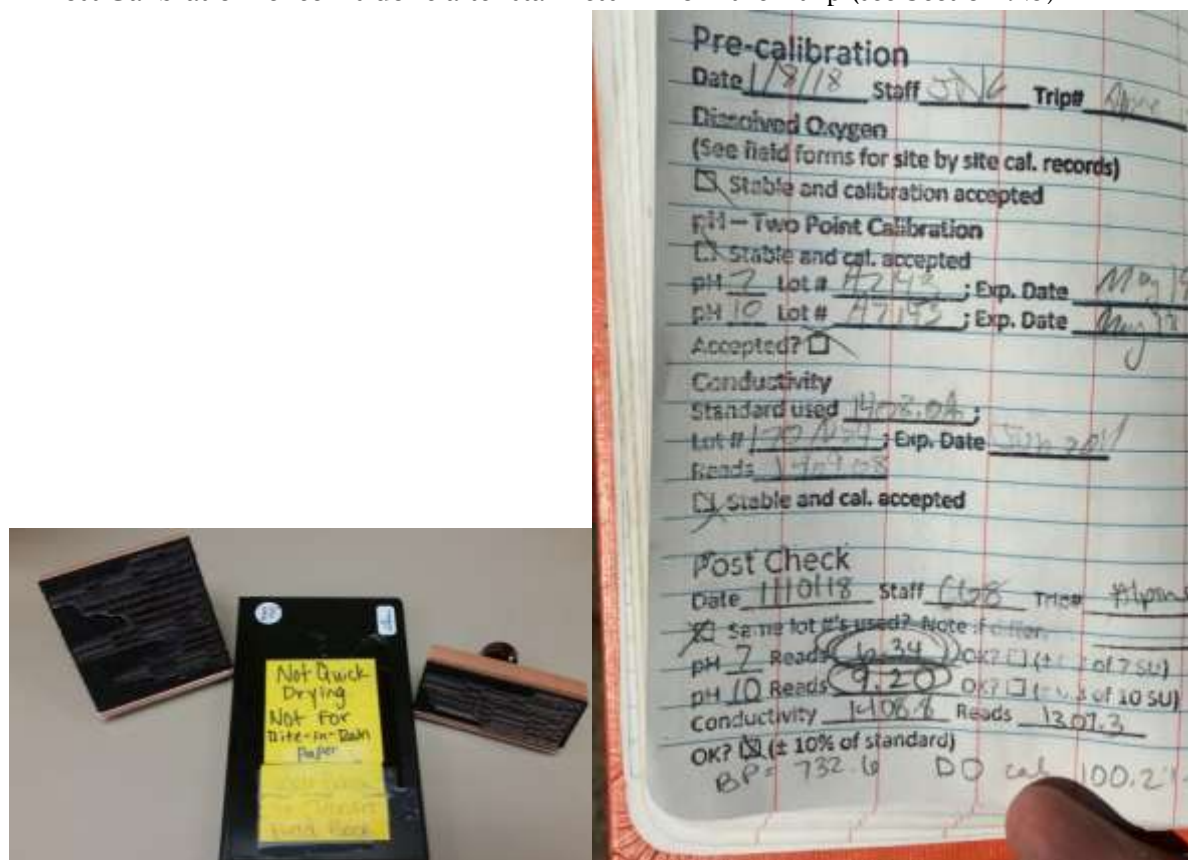 Not Quick
Drying
Not for
Rite-in-Rain
Paper
Pre-calibration
Date 1/8/18 Staff JNG Trip#
Dissolved Oxygen
(See field forms for site by site cal. records)
Stable and calibration accepted
pH – Two Point Calibration
Stable and cal. accepted
pH 7 Lot # A7143 ; Exp. Date May 19
pH 10 Lot # A7193 ; Exp. Date May
Accepted?
Conductivity
Standard used
Lot # ; Exp. Date Jun
Reads 1409.08
Stable and cal. accepted
Post Check
Date 1/10/18 Staff Trip# Alpine
Same lot #'s used? Note if differ.
pH 7 Reads 6.34 OK? of 7 SU)
pH 10 Reads 9.20 OK? of 10 SU)
Conductivity 1408.8 Reads 1307.3
OK? (± 10% of standard)
BP= 732.6 DO cal 100.2